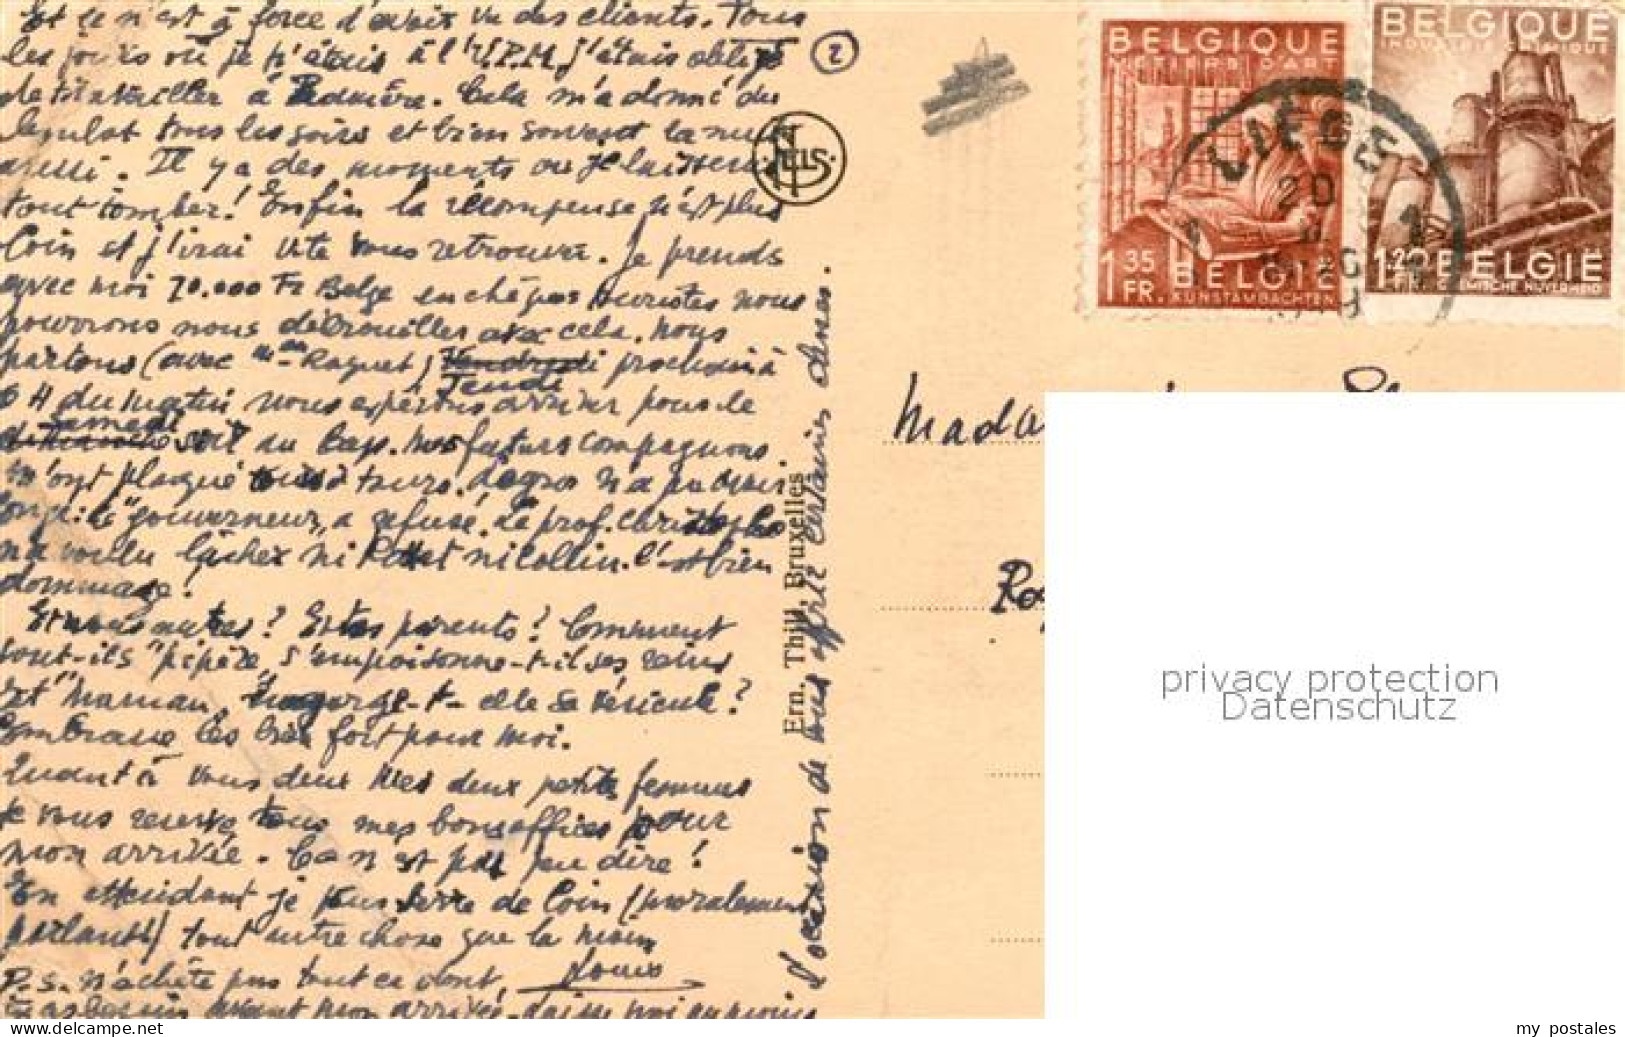 Et ce n'est à force d'avoir vu des clients. Tous
les jours où je n'étais à l'I.P.M. j'étais obligé
de travailler à . Cela m'a donné du
boulot tous les soirs et bien souvent la nuit
aussi. Il y a des moments où je laisserais
tout tomber! Enfin la récompense n'est plus
loin et j'irai vite vous retrouver. Je prends
avec moi 70.000 Fr Belge en chèques touristes nous
pouvons nous débrouiller avec cela. Nous
partons (avec Raquet) Vendredi prochain à
Jeudi
6 H du matin nous espérons arriver pour le
Samedi
soir au Cap. Mes futurs compagnons
m'ont plaqué tour à tour. n'a pu avoir
congé: le "gouverneur" a refusé. Le prof. Christophe
n'a voulu lâcher ni ni Collin. C'est bien
dommage!
Et vous autres? Et tes parents? Comment
sont-ils "pépère" s'empoisonne-t-il ses reins
et "maman" -t-elle sa vésicule?
Embrasse les bien fort pour moi.
Quant à vous deux mes deux petites femmes
je vous réserve tous mes bons offices pour
mon arrivée. Ça n'est pas peu dire!
En attendant je vous serre de loin (moralement
parlant) tout autre chose que la main
Louis
P.S. n'achète pas tout ce dont
tu as besoin avant mon arrivée. Laisse moi au moins
l'occasion de vous offrir certaines choses.
2
NELS
Ern. Thill, Bruxelles
BELGIQUE
METIERS D'ART
1 35 FR. BELGIË
KUNSTAMBACHTEN
BELGIQUE
INDUSTRIE CHIMIQUE
1 20 FR. BELGIË
CHEMISCHE NIJVERHEID
LIEGE
20
Mada
privacy protection
Datenschutz
my postales